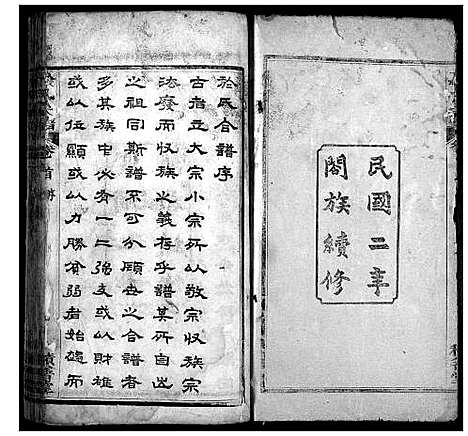 民國二年
閤族續修
於氏合譜序
古者立大宗小宗所以敬宗收族宗
法廢而收族之義存乎譜其所自出
之祖同斯譜不可不合顧世之合譜者
多其族中必有一二強支或以財雄
或以位顯或以力勝貧弱者始遠而